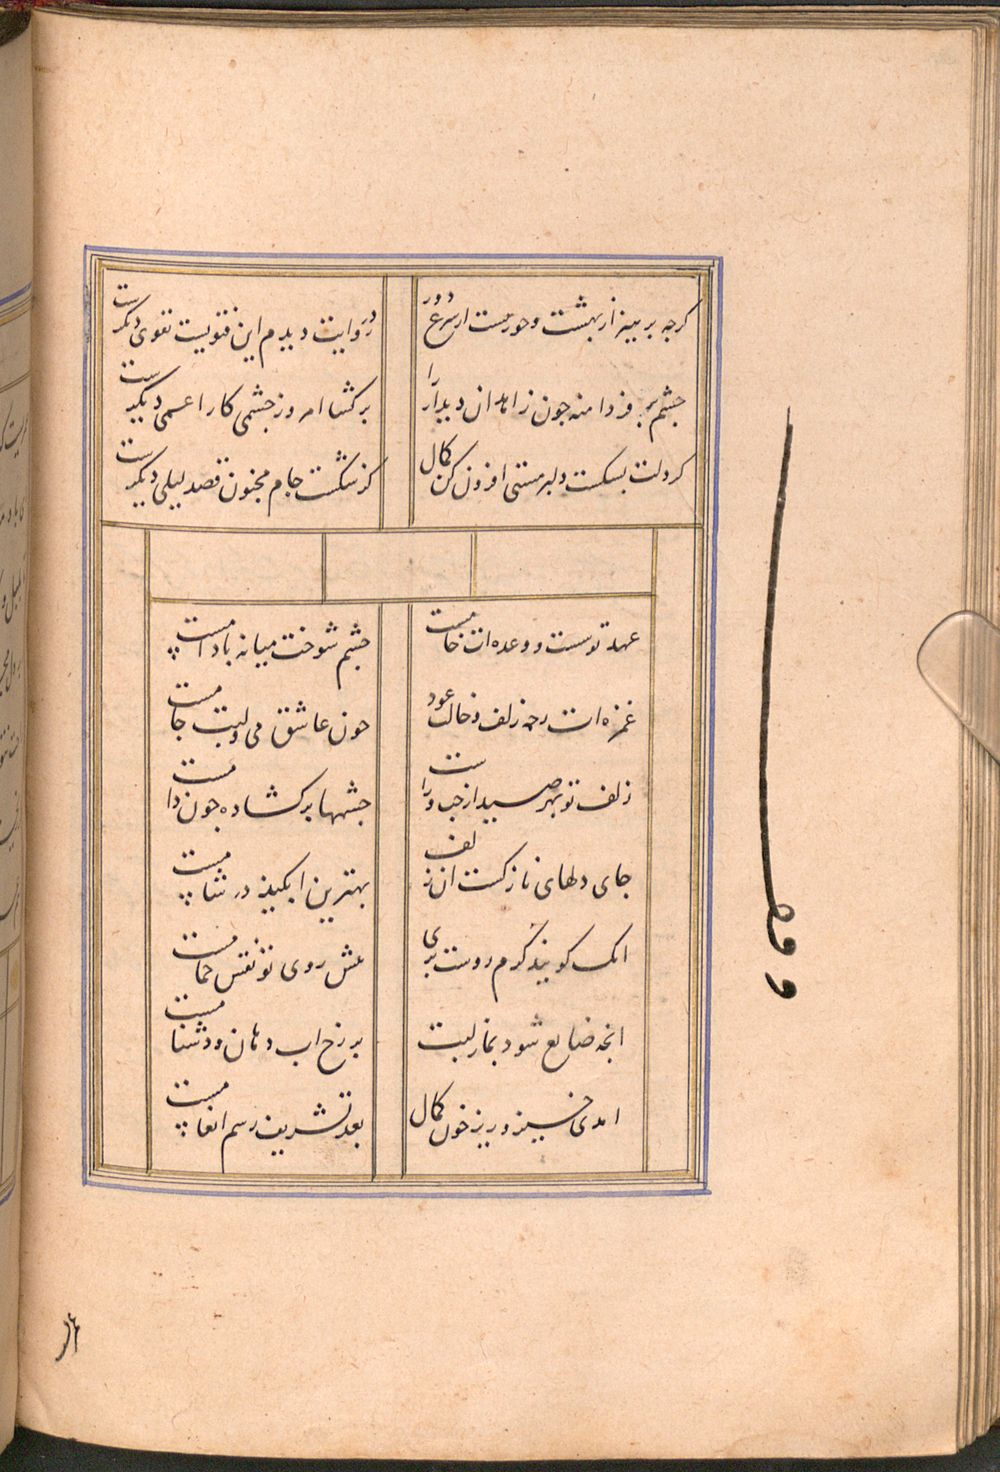 کرچه پرهیز از بهشت و حور هست از شرع دور
در روایت دیدم این فتویست تقوی دیگرست
چشم بر فردا منه چون زاهدان دیدار را
برکشا امروز چشمی کار اعمی دیگرست
کر دلت بشکست دلبر مستی افزون کن کمال
کز شکست جام مجنون قصد لیلی دیگرست
عهد تو سست و وعده‌ات خامست
چشم شوخت میانه بادامست
غمزه‌ات رحه زلف و خالت عود
خون عاشق می و لبت جامست
زلف تو بهر صید از چپ و راست
چشمها برکشاده چون دامست
جای دلهای نازکست آن زلف
بهترین ابکینه در شامست
انک کویند کرم روست پری
پیش روی تو نقش حمامست
انچه ضایع شود بنماز لبت
بر رخ اب دهان و دشنامست
امدی خیز و ریز خون کمال
بعد تشریف رسم انعامست
وقف